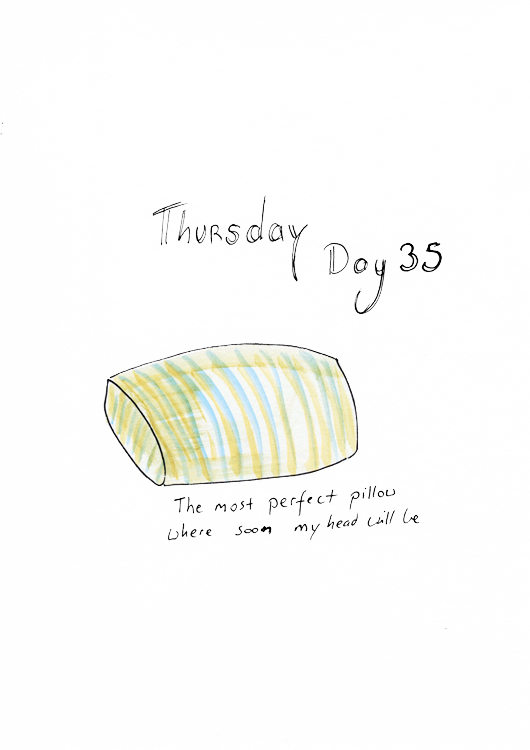 Thursday
Day 35
The most perfect pillow
where soon my head will be